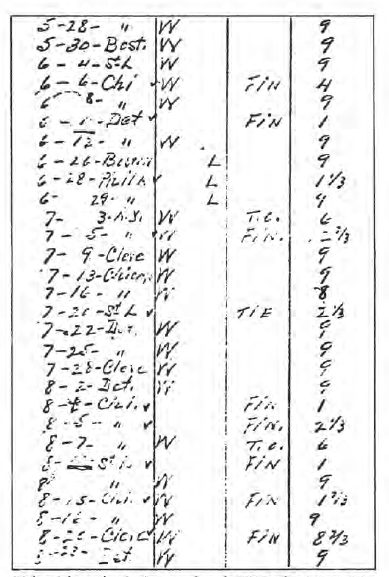 5-28- " W 9
5-30-Bost. W 9
6-4-StL W 9
6-6-Chi ✓ W FIN 4
6 8- " W 9
6- -Det ✓ FIN 1
6-12- " W 9
6-26-Boston L 9
6-28-Phila ✓ L 1 1/3
6- 29- " L 9
7- 3-N.Y. W T.O. 6
7-5- " ✓ W FIN. 2 2/3
7-9-Cleve W 9
7-13-Chica. W 9
7-16- " W 8
7-20-St L ✓ TIE 2 1/3
7-22-Det. W 9
7-25- " W 9
7-28-Cleve W 9
8-2-Det. W 9
8- -Chi. ✓ FIN 1
8-5- " ✓ FIN. 2 1/3
8-7- " W T.O. 6
8- St L. ✓ FIN 1
8 " W 9
8-15-Chi. ✓ FIN 1 2/3
8-16- " W 9
8-20-Cleve ✓ W FIN 8 2/3
8-23-Det. W 9